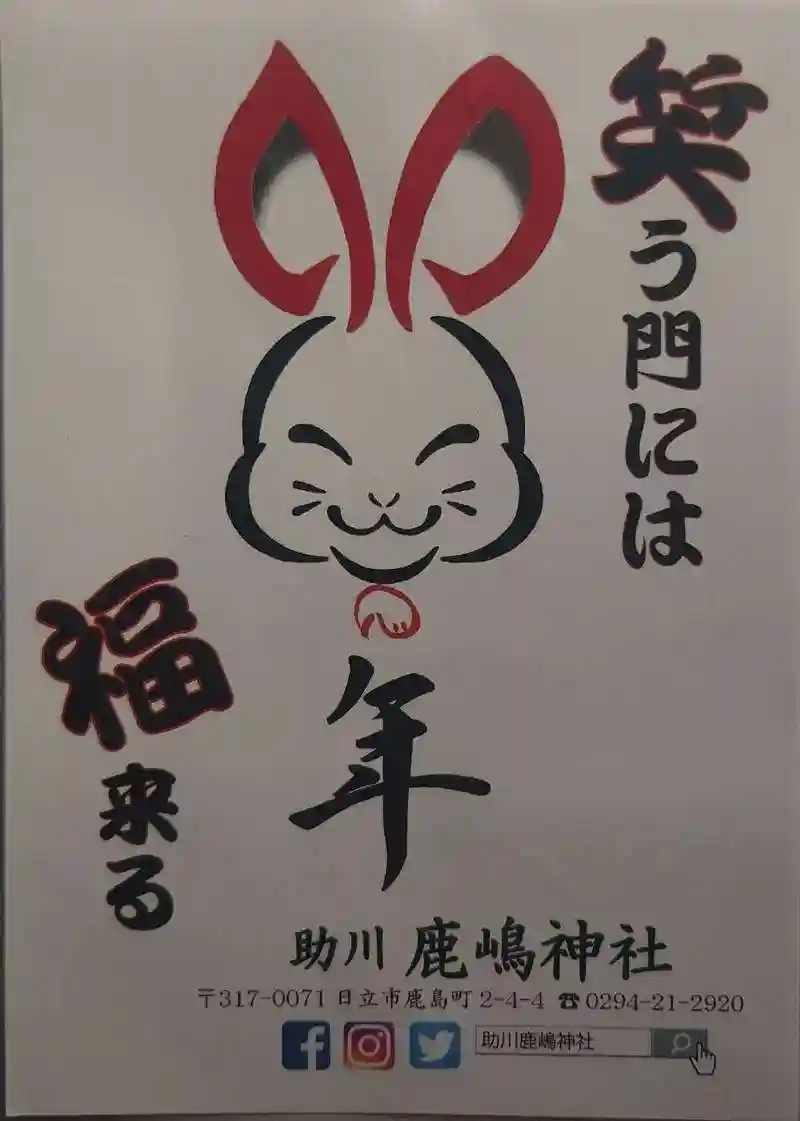 笑う門には
福来る
年
助川 鹿嶋神社
〒317-0071 日立市鹿島町 2-4-4 ☎0294-21-2920
助川鹿嶋神社